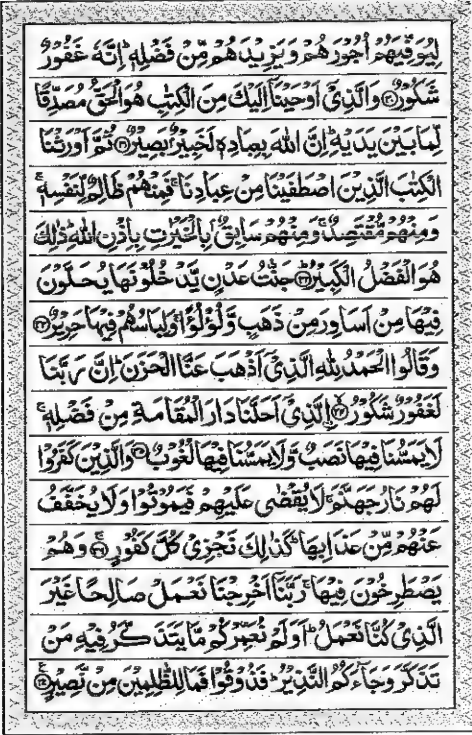 لِيُوَفِّيَهُمْ اُجُوْرَهُمْ وَيَزِيْدَهُمْ مِّنْ فَضْلِهٖ ؕ اِنَّهٗ غَفُوْرٌ
شَكُوْرٌ ﴿۳۰﴾ وَالَّذِيْٓ اَوْحَيْنَآ اِلَيْكَ مِنَ الْكِتٰبِ هُوَ الْحَقُّ مُصَدِّقًا
لِّمَا بَيْنَ يَدَيْهِ ؕ اِنَّ اللّٰهَ بِعِبَادِهٖ لَخَبِيْرٌۢ بَصِيْرٌ ﴿۳۱﴾ ثُمَّ اَوْرَثْنَا
الْكِتٰبَ الَّذِيْنَ اصْطَفَيْنَا مِنْ عِبَادِنَا ۚ فَمِنْهُمْ ظَالِمٌ لِّنَفْسِهٖ ۚ
وَمِنْهُمْ مُّقْتَصِدٌ ۚ وَمِنْهُمْ سَابِقٌۢ بِالْخَيْرٰتِ بِاِذْنِ اللّٰهِ ؕ ذٰلِكَ
هُوَ الْفَضْلُ الْكَبِيْرُ ﴿۳۲﴾ جَنّٰتُ عَدْنٍ يَّدْخُلُوْنَهَا يُحَلَّوْنَ
فِيْهَا مِنْ اَسَاوِرَ مِنْ ذَهَبٍ وَّلُؤْلُؤًا ۚ وَلِبَاسُهُمْ فِيْهَا حَرِيْرٌ ﴿۳۳﴾
وَقَالُوا الْحَمْدُ لِلّٰهِ الَّذِيْٓ اَذْهَبَ عَنَّا الْحَزَنَ ؕ اِنَّ رَبَّنَا
لَغَفُوْرٌ شَكُوْرُ ۙ﴿۳۴﴾ ۨالَّذِيْٓ اَحَلَّنَا دَارَ الْمُقَامَةِ مِنْ فَضْلِهٖ ۚ
لَا يَمَسُّنَا فِيْهَا نَصَبٌ وَّلَا يَمَسُّنَا فِيْهَا لُغُوْبٌ ﴿۳۵﴾ وَالَّذِيْنَ كَفَرُوْا
لَهُمْ نَارُ جَهَنَّمَ ۚ لَا يُقْضٰى عَلَيْهِمْ فَيَمُوْتُوْا وَلَا يُخَفَّفُ
عَنْهُمْ مِّنْ عَذَابِهَا ؕ كَذٰلِكَ نَجْزِيْ كُلَّ كَفُوْرٍ ۚ﴿۳۶﴾ وَهُمْ
يَصْطَرِخُوْنَ فِيْهَا ۚ رَبَّنَآ اَخْرِجْنَا نَعْمَلْ صَالِحًا غَيْرَ
الَّذِيْ كُنَّا نَعْمَلُ ؕ اَوَلَمْ نُعَمِّرْكُمْ مَّا يَتَذَكَّرُ فِيْهِ مَنْ
تَذَكَّرَ وَجَآءَكُمُ النَّذِيْرُ ؕ فَذُوْقُوْا فَمَا لِلظّٰلِمِيْنَ مِنْ نَّصِيْرٍ ﴿۳۷﴾